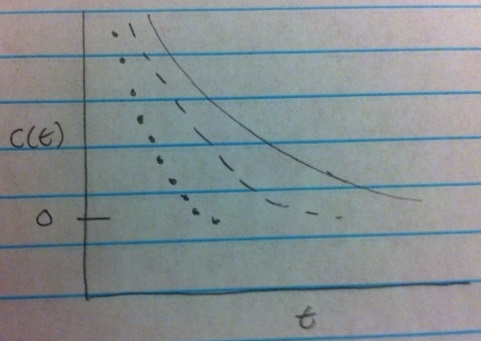 C(t)
0
t